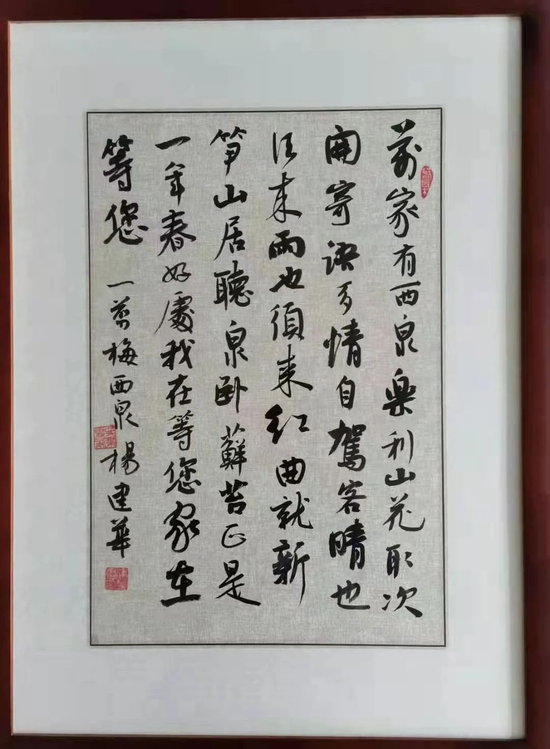 家有西泉樂利山花取次
開寄语多情自駕客晴也
须来雨也須来红曲就新
笋山居聽泉卧蘚苔正是
一年春好處我在等您家在
等您
一剪梅西泉 楊建華